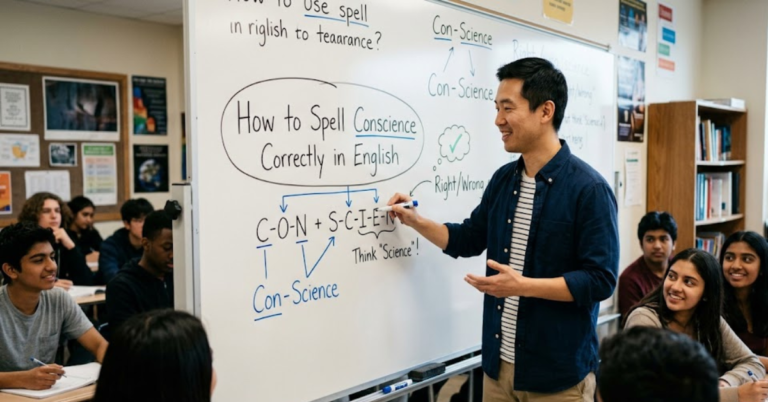 How to Use spell
in riglish to teaarance?
Con-Science
Con-Science
How to Spell Conscience
Correctly in English
Right/Wrong
C-O-N + S-C-I-E-N
Think "Science"!
Con-Science